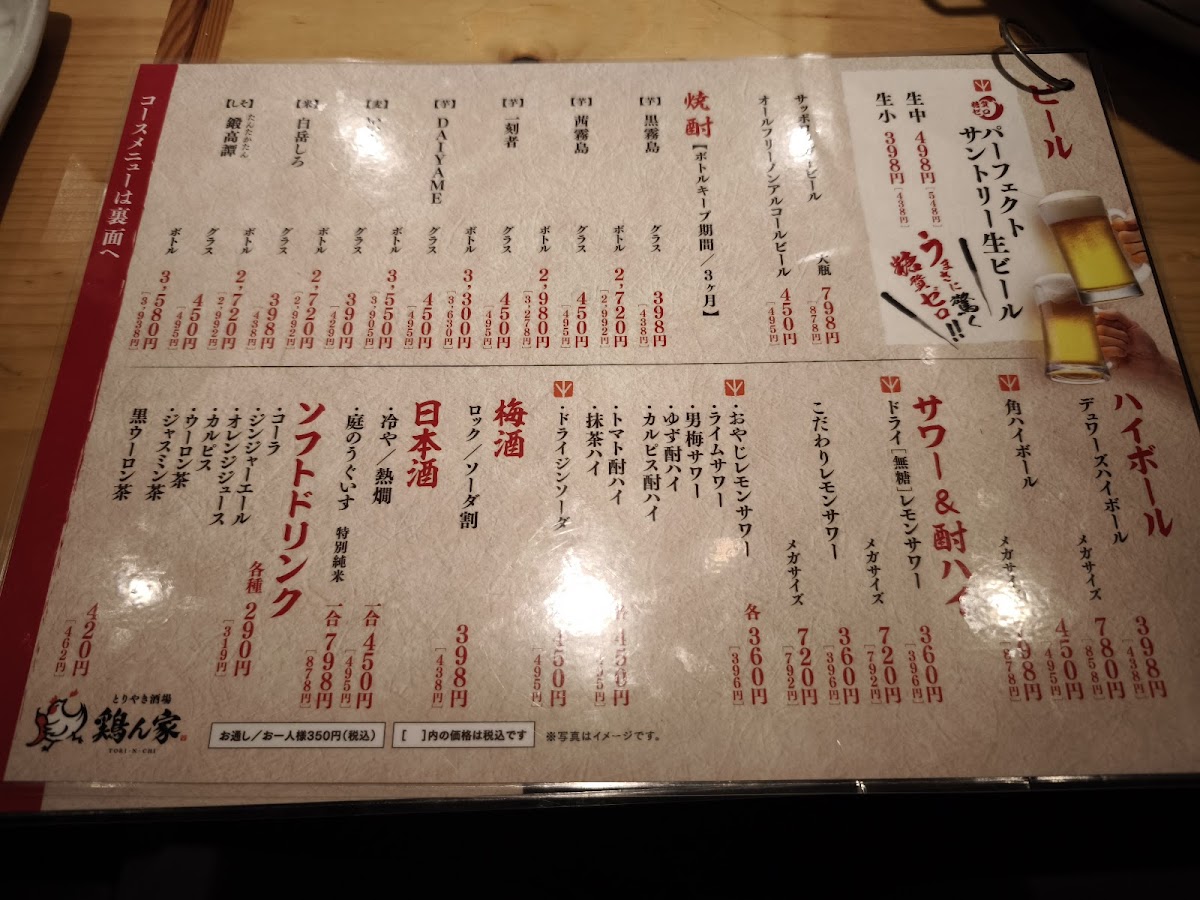 ビール
糖質ゼロ
パーフェクト
サントリー生ビール
生中 498円 [548円]
生小 398円 [438円]
うまさに驚く
糖質ゼロ!!
大瓶 798円 [878円]
オールフリーノンアルコールビール 450円 [495円]
焼酎 【ボトルキープ期間／3ヶ月】
【芋】黒霧島 グラス 398円 [438円]
ボトル 2,720円 [2,992円]
【芋】茜霧島 グラス 450円 [495円]
ボトル 2,980円 [3,278円]
【芋】一刻者 グラス 450円 [495円]
ボトル 3,300円 [3,630円]
【芋】DAIYAME グラス 450円 [495円]
ボトル 3,550円 [3,905円]
【麦】 グラス 390円 [429円]
ボトル 2,720円 [2,992円]
【米】白岳しろ グラス 398円 [438円]
ボトル 2,720円 [2,992円]
【しそ】鍛高譚 たんたかたん グラス 450円 [495円]
ボトル 3,580円 [3,938円]
コースメニューは裏面へ
ハイボール
デュワーズハイボール 398円 [438円]
メガサイズ 780円 [858円]
角ハイボール 450円 [495円]
メガサイズ 798円 [878円]
サワー＆酎ハイ
ドライ[無糖]レモンサワー 360円 [396円]
メガサイズ 720円 [792円]
こだわりレモンサワー 360円 [396円]
メガサイズ 720円 [792円]
・おやじレモンサワー 各 360円 [396円]
・ライムサワー
・男梅サワー
・ゆず酎ハイ
・カルピス酎ハイ
・トマト酎ハイ 各 450円 [495円]
・抹茶ハイ
・ドライジンソーダ 450円 [495円]
梅酒
ロック／ソーダ割 398円 [438円]
日本酒
・冷や／熱燗 一合 450円 [495円]
・庭のうぐいす 特別純米 一合 798円 [878円]
ソフトドリンク
・コーラ 各種 290円 [319円]
・ジンジャーエール
・オレンジジュース
・カルピス
・ウーロン茶
・ジャスミン茶
黒ウーロン茶 420円 [462円]
とりやき酒場
鶏ん家
TORI-N-CHI
お通し／お一人様350円(税込)
[ ]内の価格は税込です
※写真はイメージです。